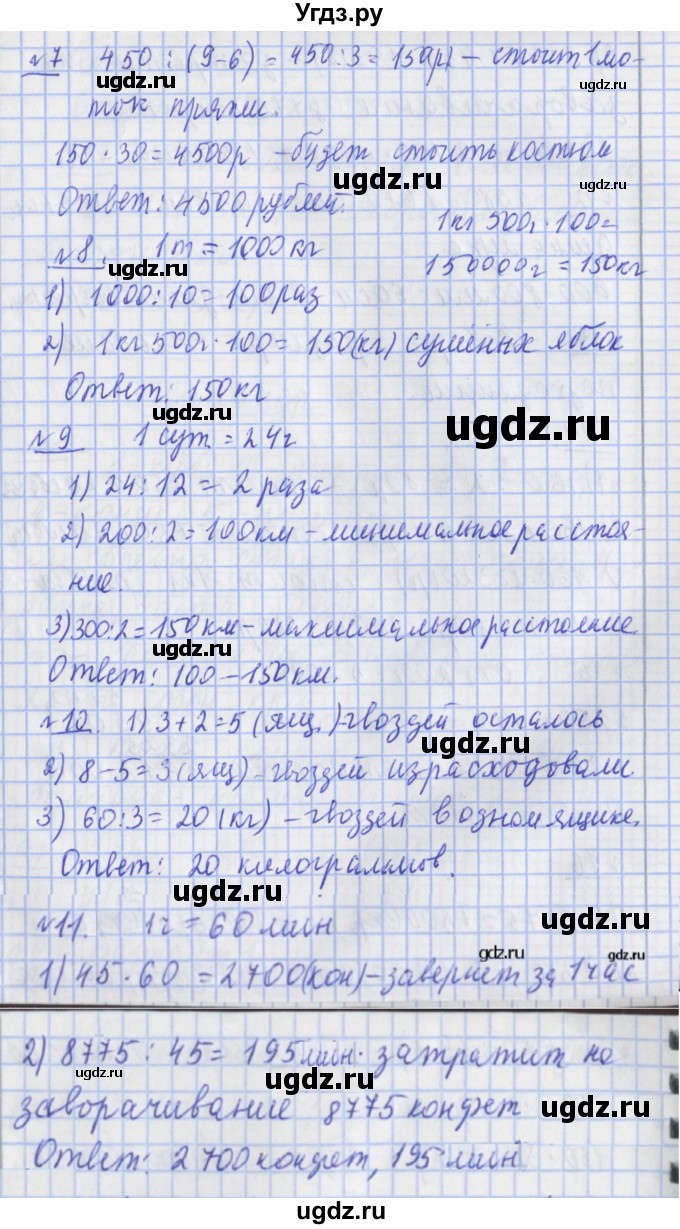 Угдз.ру
№7 450 : (9-6) = 450:3 = 150(р) – стоит 1 мо-
ugdz.ru ugdz.ru
ток пряжи.
150 · 30 = 4500р – будет стоить костюм
ugdz.ru
Ответ: 4500 рублей.
1кг 500г · 100 =
№8. 1т = 1000кг
150000г = 150кг
1) 1000:10 = 100раз
ugdz.ru
2) 1кг 500г · 100 = 150(кг) сушёных яблок
Ответ: 150кг
ugdz.ru
ugdz.ru
№9 1 сут = 24г
1) 24:12 = 2 раза
ugdz.ru
2) 200:2 = 100км – минимальное расстоя-
ние.
3) 300:2 = 150км – максимальное расстояние
ugdz.ru
Ответ: 100 – 150км.
№10. 1) 3+2=5 (ящ.) – гвоздей осталось
ugdz.ru
2) 8-5=3 (ящ) – гвоздей израсходовали
3) 60:3 = 20 (кг) – гвоздей в одном ящике.
Ответ: 20 килограммов.
ugdz.ru
№11. 1ч = 60 мин
ugdz.ru
gdz.ru
1) 45·60 = 2700(кон) – завернет за 1 час
ugdz.ru
2) 8775 : 45 = 195мин. затратит на
gdz.ru
ugdz.ru
заворачивание 8775 конфет
gdz.ru
Ответ: 2700 конфет, 195 мин
ugdz.ru